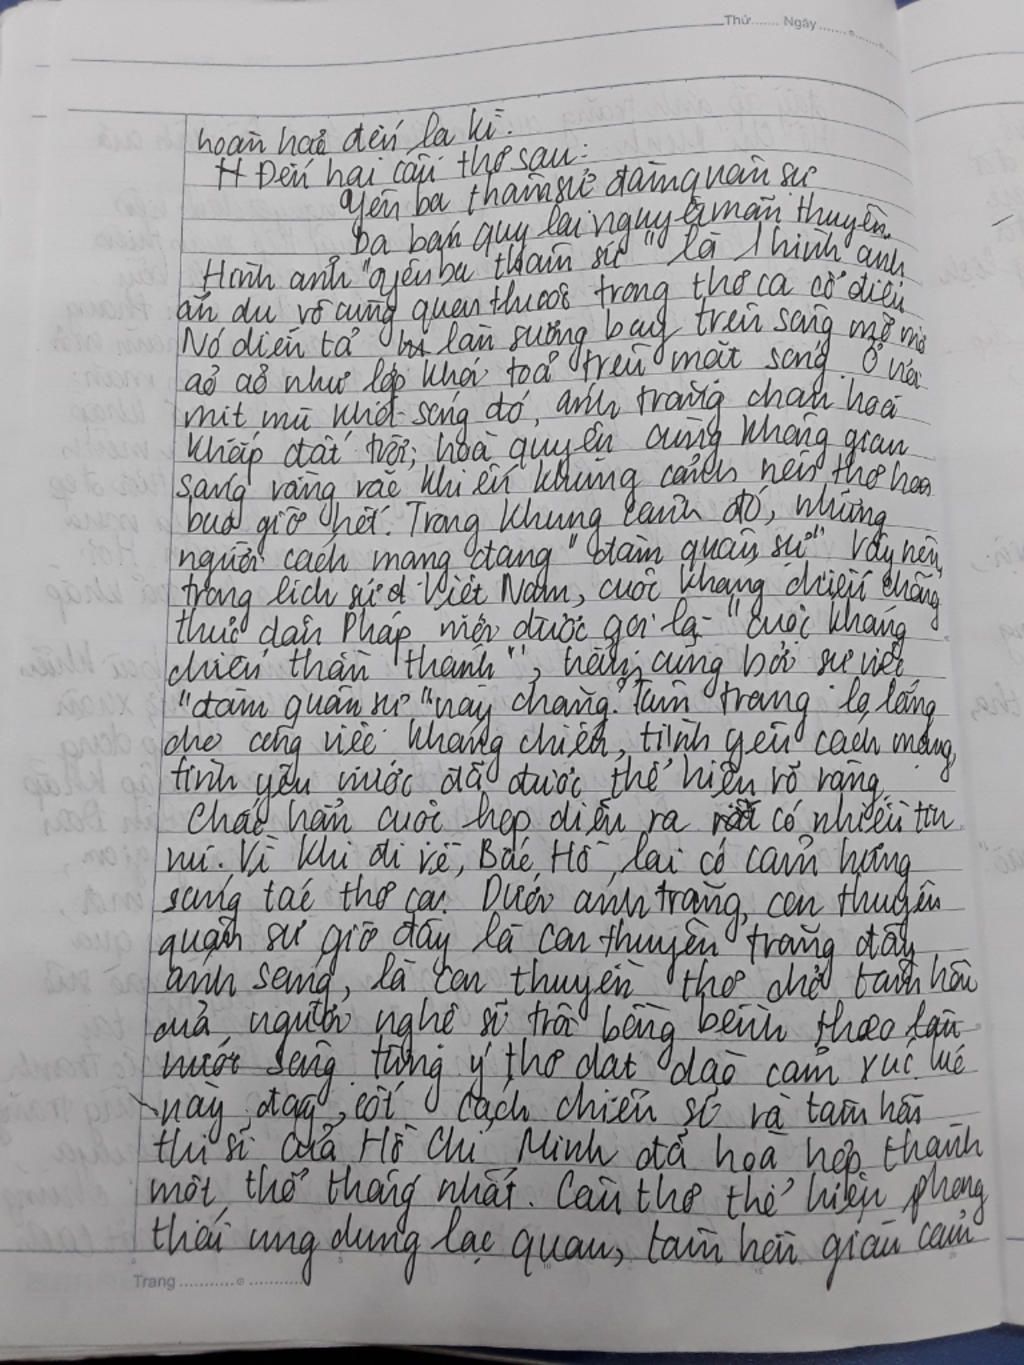 Thứ....... Ngày.............
hoàn hảo đến lạ kì.
++ Đến hai câu thơ sau:
Yên ba thâm sứ đàm quân sự
Dạ bán quy lai nguyệt mãn thuyền.
Hình ảnh "yên ba thâm sứ" là 1 hình ảnh
ẩn dụ vô cùng quen thuộc trong thơ ca cổ điển
Nó diễn tả làn sương bay trên sông mờ mờ
ảo ảo như lớp khói toả trên mặt sông. Ở nơi
mịt mù khói sóng đó, ánh trăng chan hoà
khắp đất trời, hoà quyện cùng không gian
sáng vằng vặc khiến khung cảnh nên thơ hơn
bao giờ hết. Trong khung cảnh đó, những
người cách mạng đang "đàm quân sự" Vậy nên,
trong lịch sử Việt Nam, cuộc kháng chiến chống
thực dân Pháp mới được gọi là "cuộc kháng
chiến thần thánh", hẳn cũng bởi sự việc
"đàm quân sự" này chăng. Tâm trạng lo lắng
cho công việc kháng chiến, tình yêu cách mạng,
tình yêu nước đã được thể hiện rõ ràng,
Chắc hẳn cuộc họp diễn ra rất có nhiều tin
vui. Vì khi đi về, Bác Hồ lại có cảm hứng
sáng tác thơ ca. Dưới ánh trăng, con thuyền
quân sự giờ đây là con thuyền trăng đầy
ánh sáng, là con thuyền thơ chở tâm hồn
của người nghệ sĩ trôi bồng bềnh theo làn
nước sông từng ý thơ dạt dào cảm xúc. Lúc
này đây, cốt cách chiến sĩ và tâm hồn
thi sĩ của Hồ Chí Minh đã hoà hợp thành
một thể thống nhất. Câu thơ thể hiện phong
thái ung dung lạc quan, tâm hồn giàu cảm
Trang.......................